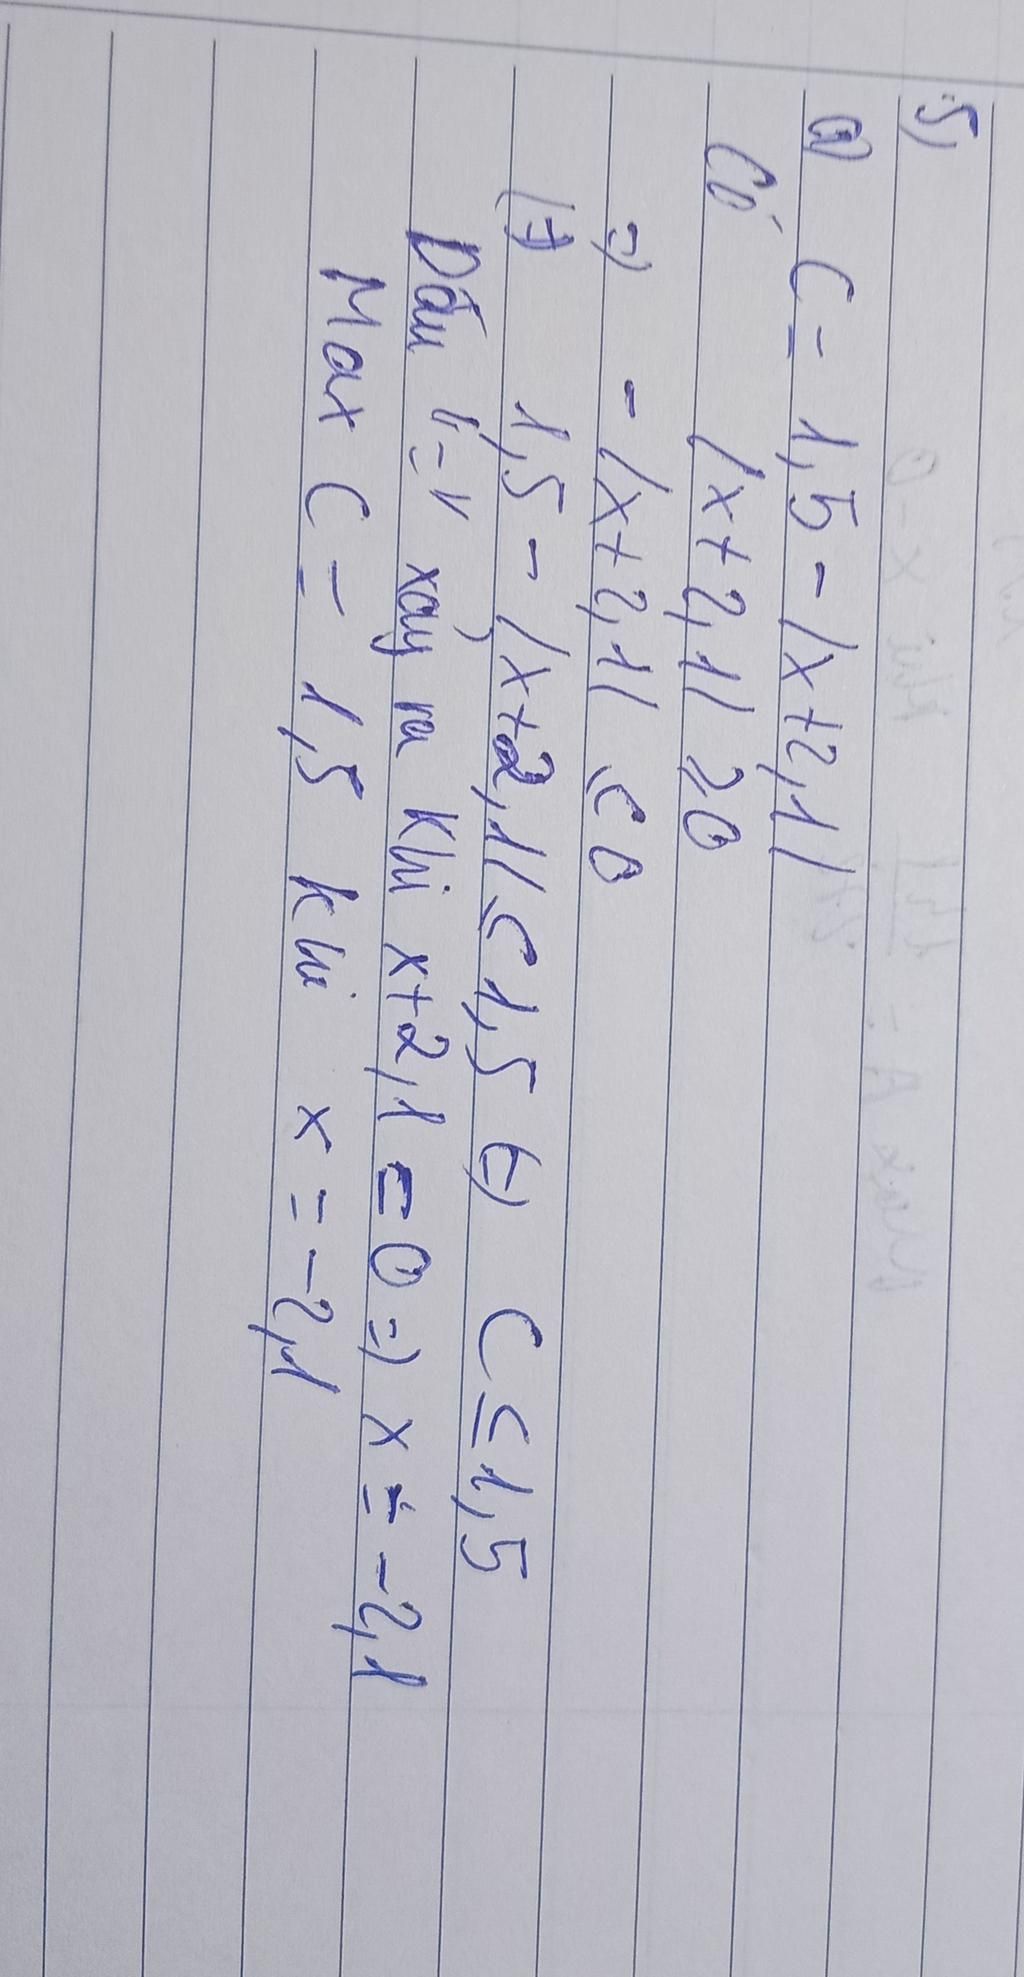 5)
a) C = 1,5 - |x+2,1|
Có |x+2,1| ≥ 0
=) - |x+2,1| ≤ 0
(=) 1,5 - |x+2,1| ≤ 1,5 (=) C ≤ 1,5
Dấu "=" xảy ra khi x+2,1 = 0 =) x = -2,1
Max C = 1,5 khi x = -2,1